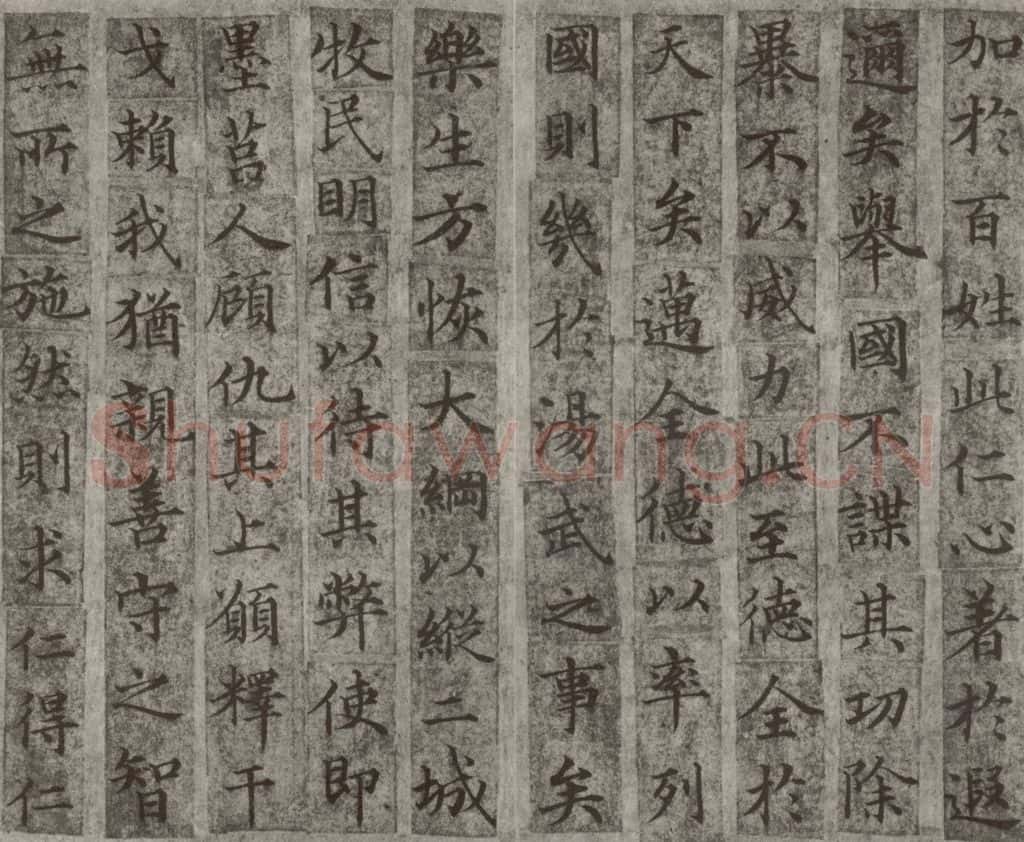 加於百姓此仁心著於遐
邇矣舉國不謀其功除
暴不以威力此至德全於
天下矣邁全德以率列
國則幾於湯武之事矣
樂生方恢大綱以縱二城
牧民明信以待其弊使即
墨莒人顧仇其上願釋干
戈賴我猶親善守之智
無所之施然則求仁得仁
Shufawang.CN